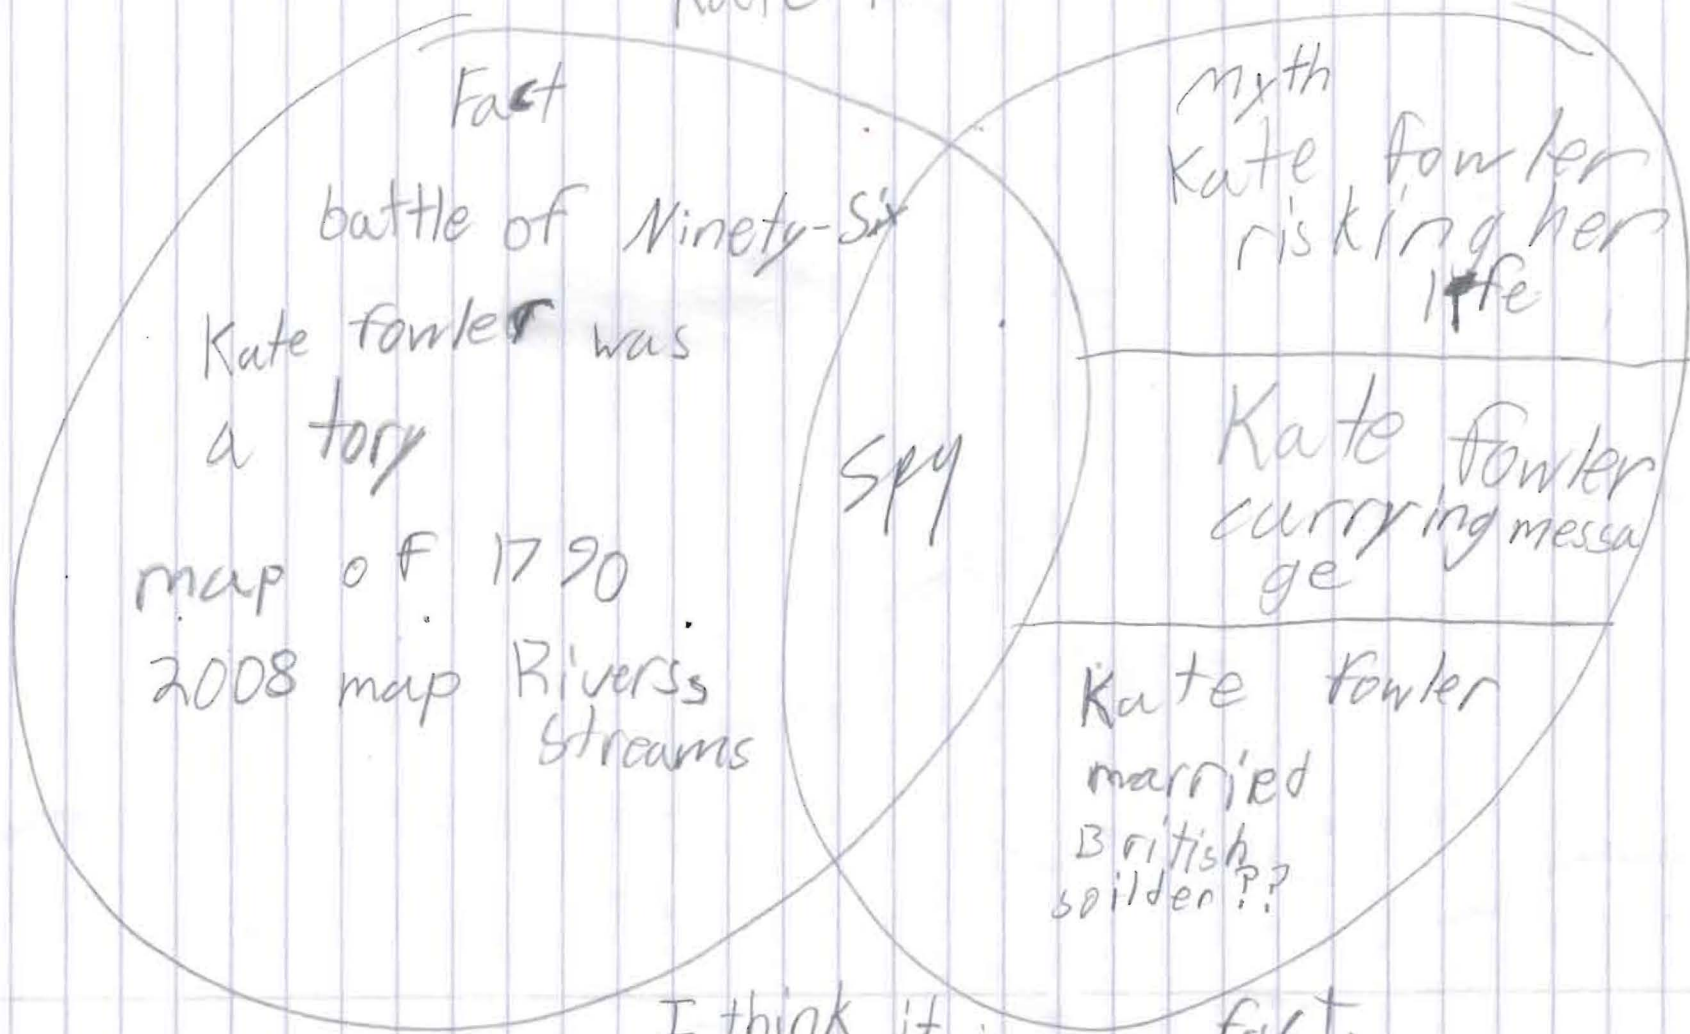 Fact
battle of Ninety-Six
Kate fowler was
a tory
map of 1790
2008 map Riverss
streams
spy
myth
Kate fowler
risking her
life
Kate fowler
carrying messa
ge
Kate fowler
married
British
soilder??
I think it fact